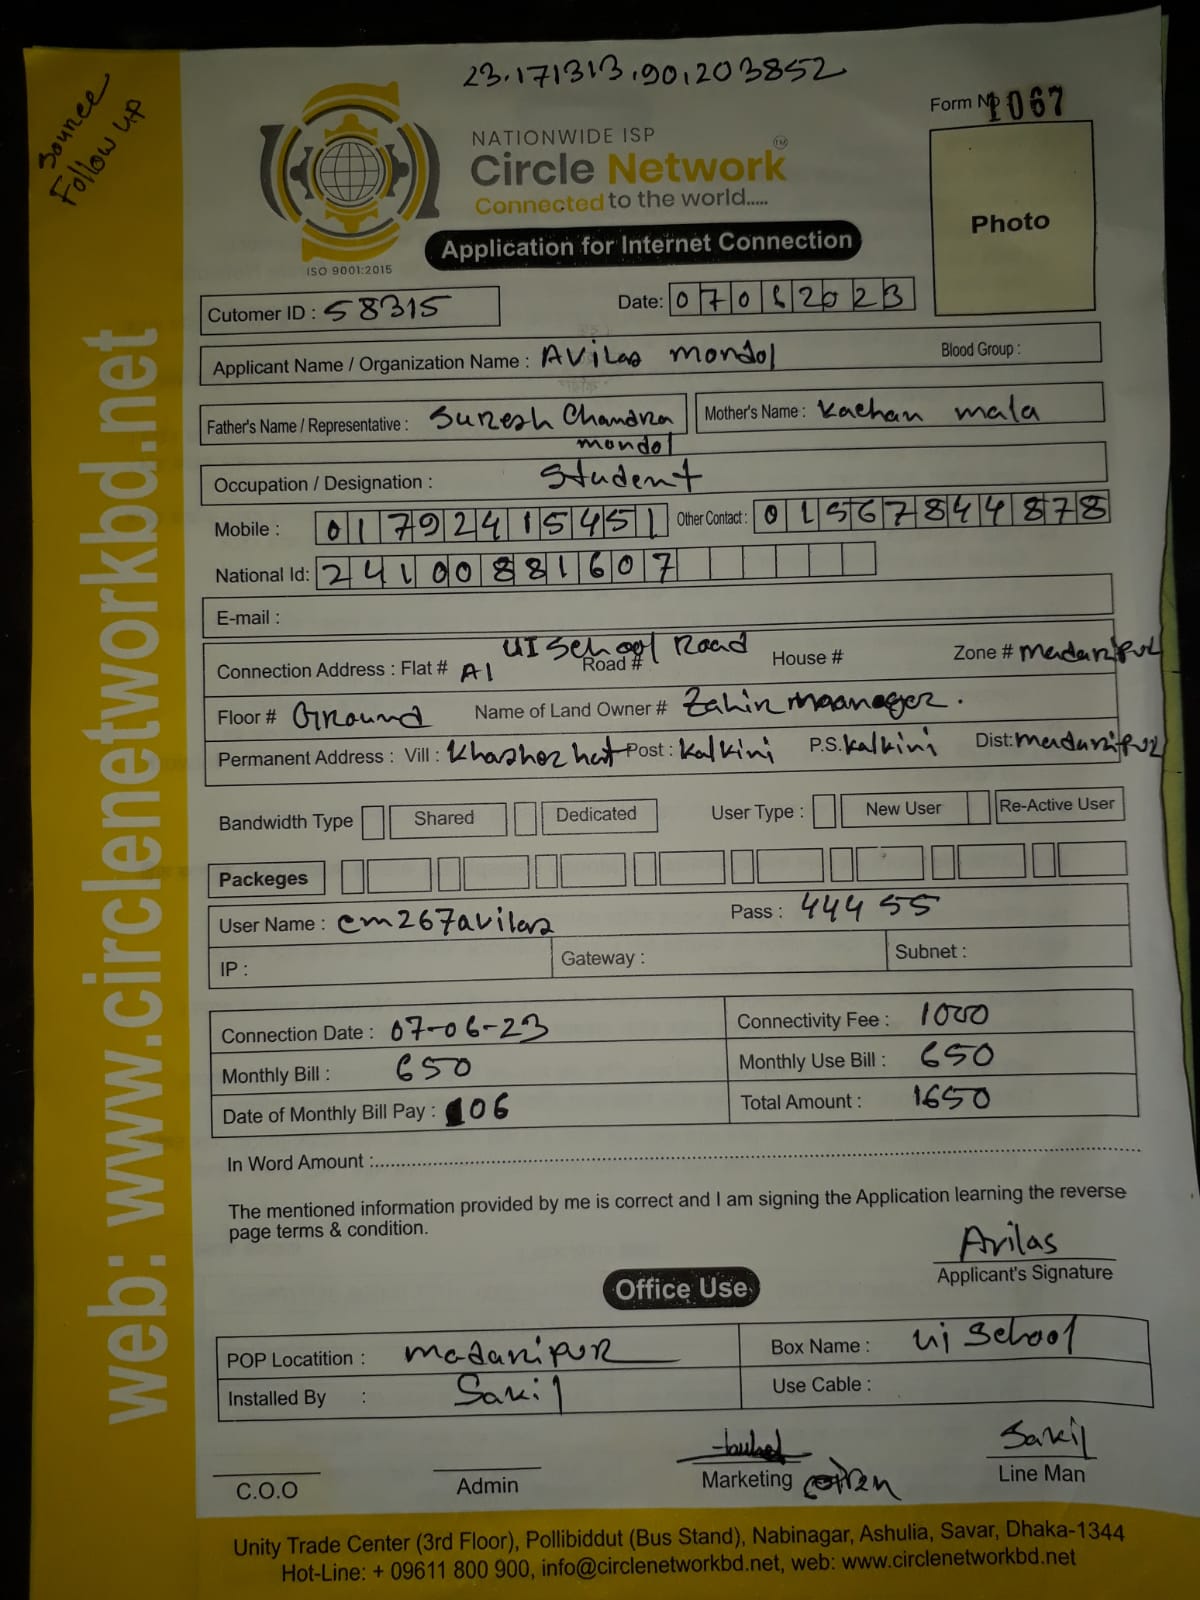 23.171313,90,203852
Source
Follow up
Form No 1067
NATIONWIDE ISP
Circle Network TM
Connected to the world.....
ISO 9001:2015
Application for Internet Connection
Photo
Cutomer ID : 58315 Date: 07062023
Applicant Name / Organization Name : Avilas mondol Blood Group :
Father's Name / Representative : Suresh Chandra mondol Mother's Name : Kachan mala
Occupation / Designation : Student
Mobile : 01792415451 Other Contact : 01567844878
National Id: 24100881607
E-mail :
Connection Address : Flat # A1 UI School Road Road # House # Zone # madaripur
Floor # Ground Name of Land Owner # Zahir maanager.
Permanent Address : Vill : Khasher hat Post : Kalkini P.S. kalkini Dist: madaripur
Bandwidth Type Shared Dedicated User Type : New User Re-Active User
Packeges
User Name : cm267avilas Pass : 44455
IP : Gateway : Subnet :
Connection Date : 07-06-23 Connectivity Fee : 1000
Monthly Bill : 650 Monthly Use Bill : 650
Date of Monthly Bill Pay : 06 Total Amount : 1650
In Word Amount :
The mentioned information provided by me is correct and I am signing the Application learning the reverse
page terms & condition.
Avilas
Applicant's Signature
Office Use
POP Locatition : madaripur Box Name : ui School
Installed By : Sakil Use Cable :
Sakil
C.O.O Admin Marketing Line Man
Unity Trade Center (3rd Floor), Pollibiddut (Bus Stand), Nabinagar, Ashulia, Savar, Dhaka-1344
Hot-Line: + 09611 800 900, info@circlenetworkbd.net, web: www.circlenetworkbd.net
web: www.circlenetworkbd.net